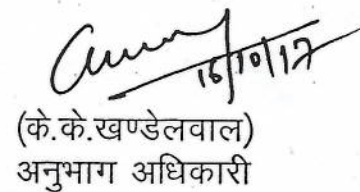 16/10/17
(के.के.खण्डेलवाल)
अनुभाग अधिकारी